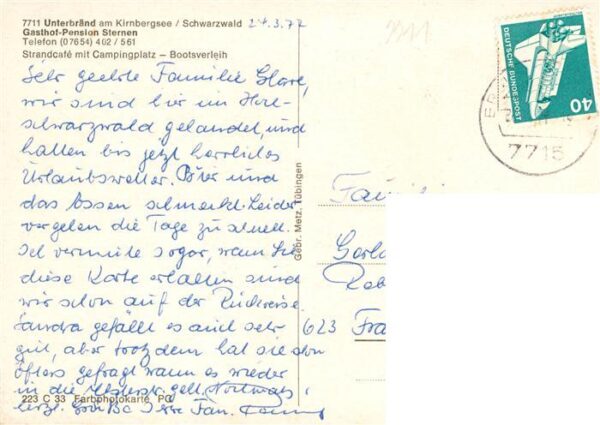 7711 Unterbränd am Kirnbergsee / Schwarzwald 24.3.77
Gasthof-Pension Sternen
Telefon (07654) 462 / 561
Strandcafé mit Campingplatz – Bootsverleih
Sehr geehrte Familie
wir sind hier im
schwarzwald gelandet, und
hatten bis jetzt herrliches
Urlaubswetter. und
das Essen schmeckt. Leider
vergehen die Tage zu schnell.
Ich vermute sogar, wenn Sie
diese Karte erhalten sind
wir schon auf der Rückreise
Sandra gefällt es auch sehr
gut, aber trotzdem hat sie schon
öfters gefragt wann es wieder
in die geht.
herzl. Ihre Fam.
223 C 33 Farbphotokarte
Gebr. Metz, Tübingen
3911
DEUTSCHE BUNDESPOST
40
7715
Famili
623 Fra